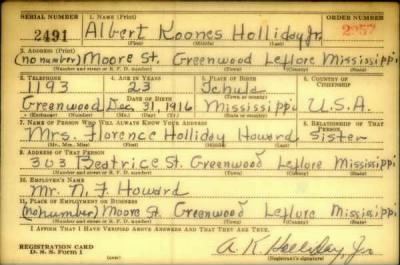 SERIAL NUMBER 1. NAME (Print) ORDER NUMBER
2491 Albert Koones Holliday Jr.
(First) (Middle) (Last)
2. ADDRESS (Print)
(no number) Moore St. Greenwood Leflore Mississippi
(Number and street or R. F. D. number) (Town) (County) (State)
3. TELEPHONE 4. AGE IN YEARS 5. PLACE OF BIRTH 6. COUNTRY OF CITIZENSHIP
1193 23 Tchula
Greenwood DATE OF BIRTH Dec. 31, 1916 Mississippi U.S.A.
(Exchange) (Number) (Mo.) (Day) (Yr.) (State or country)
7. NAME OF PERSON WHO WILL ALWAYS KNOW YOUR ADDRESS 8. RELATIONSHIP OF THAT PERSON
Mrs. Florence Holliday Howard Sister
(Mr., Mrs., Miss) (First) (Middle) (Last)
9. ADDRESS OF THAT PERSON
303 Beatrice St. Greenwood Leflore Mississippi
(Number and street or R. F. D. number) (Town) (County) (State)
10. EMPLOYER'S NAME
Mr. N. F. Howard
11. PLACE OF EMPLOYMENT OR BUSINESS
(no number) Moore St. Greenwood Leflore Mississippi
(Number and street or R. F. D. number) (Town) (County) (State)
I AFFIRM THAT I HAVE VERIFIED ABOVE ANSWERS AND THAT THEY ARE TRUE.
REGISTRATION CARD
D. S. S. FORM 1 (over) A. K. Holliday, Jr.
(Registrant's signature)